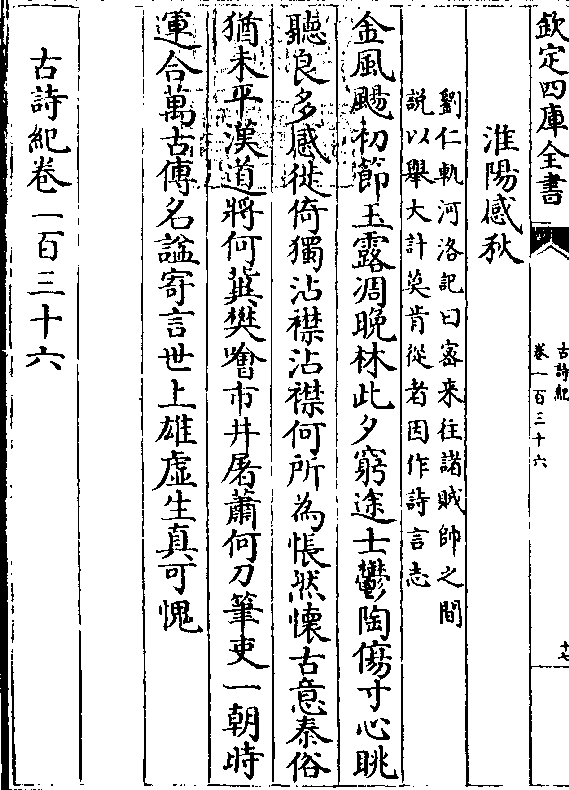 欽定四庫全書
古詩紀
卷一百三十六
十七
淮陽感秋
劉仁軌河洛記曰宻来往諸賊帥之間
説以舉大計莫肯從者因作詩言志
金風颺初節玉露凋晚林此夕窮途士鬱陶傷寸心眺
聽良多感徙倚獨沾襟沾襟何所為悵然懷古意秦俗
猶未平漢道將何兾樊噲市井屠蕭何刀筆吏一朝時
運合萬古傳名謚寄言世上雄虛生真可愧
古詩紀卷一百三十六